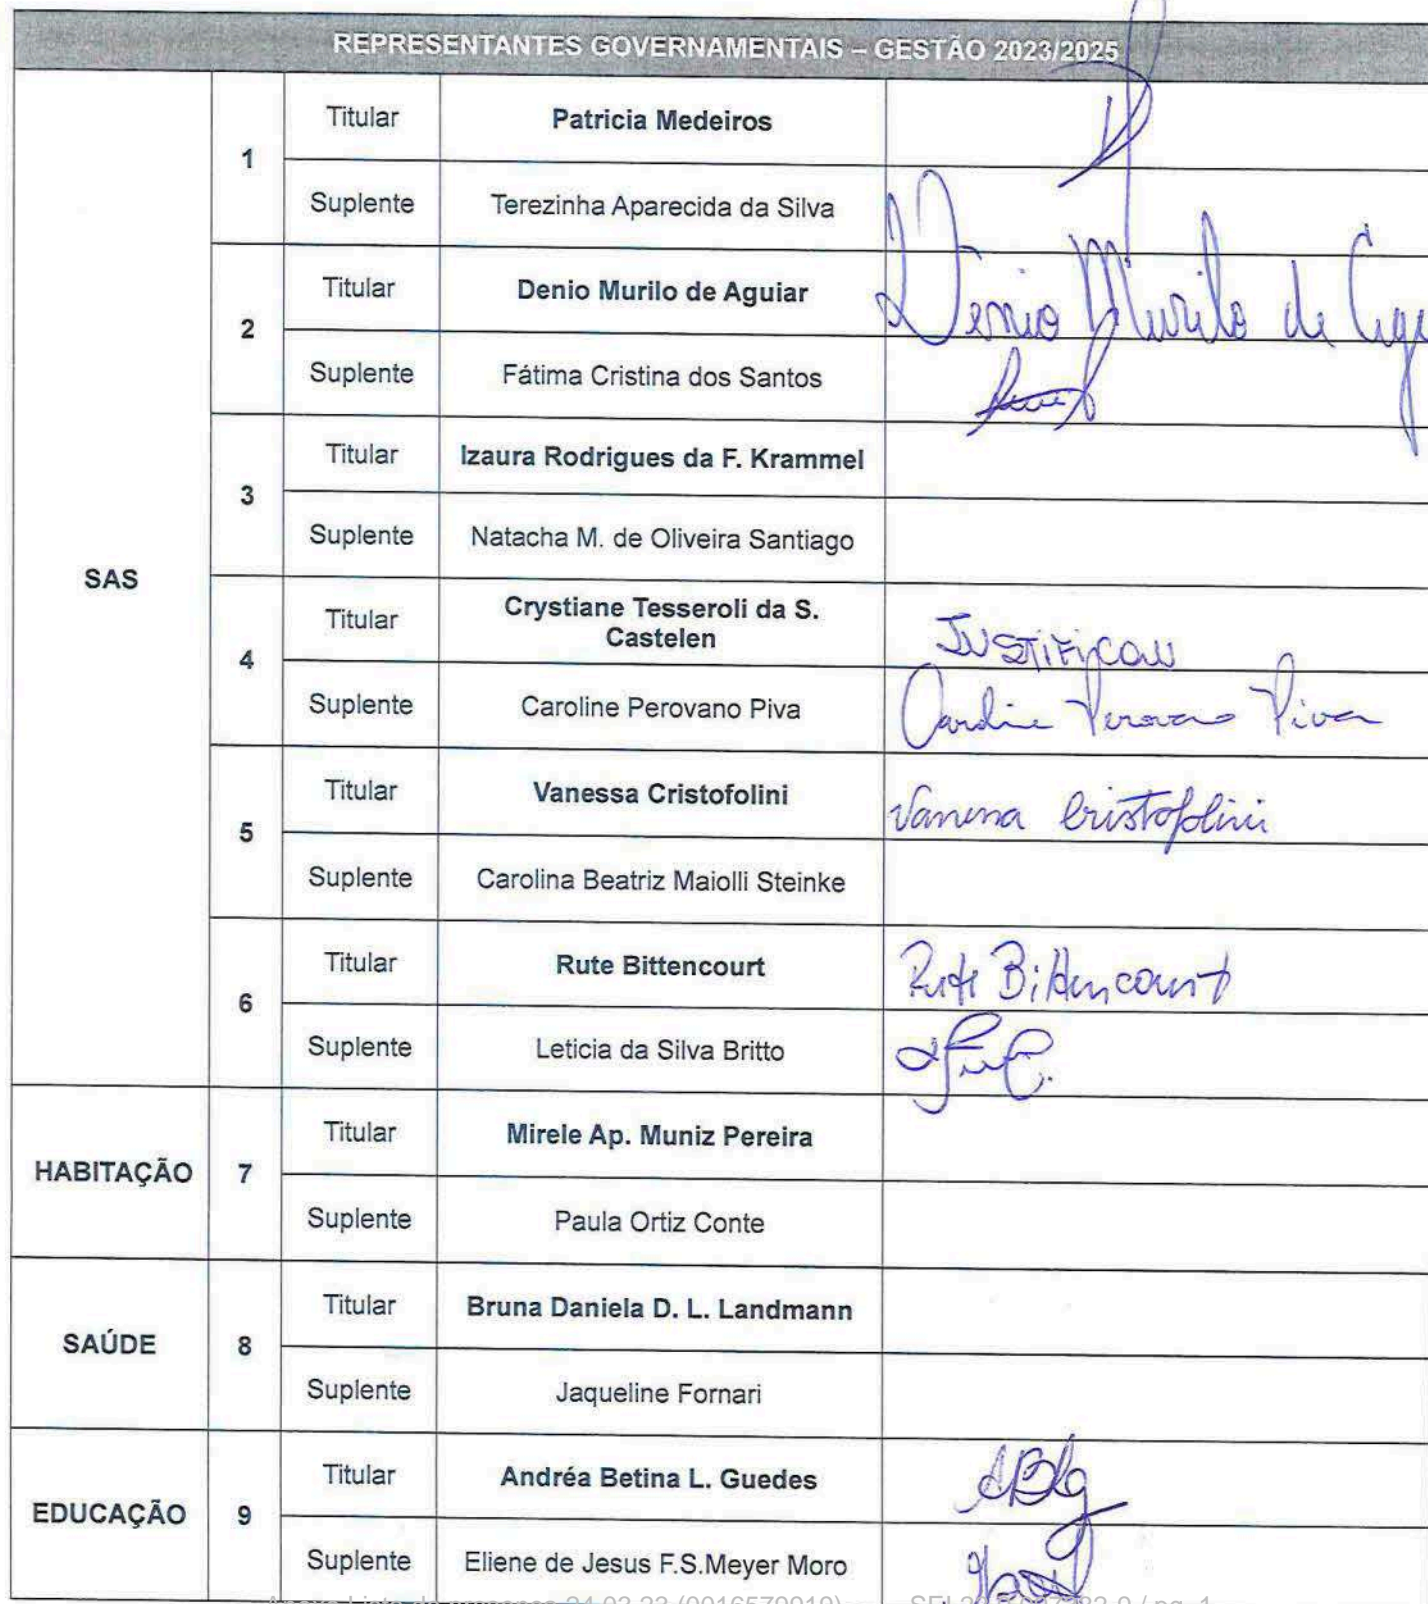 REPRESENTANTES GOVERNAMENTAIS – GESTÃO 2023/2025
SAS
1
Titular
Patricia Medeiros
Suplente
Terezinha Aparecida da Silva
2
Titular
Denio Murilo de Aguiar
Denio Murilo de
Suplente
Fátima Cristina dos Santos
3
Titular
Izaura Rodrigues da F. Krammel
Suplente
Natacha M. de Oliveira Santiago
4
Titular
Crystiane Tesseroli da S.
Castelen
JUSTIFICOU
Suplente
Caroline Perovano Piva
Caroline Perovano Piva
5
Titular
Vanessa Cristofolini
Vanessa Cristofolini
Suplente
Carolina Beatriz Maiolli Steinke
6
Titular
Rute Bittencourt
Rute Bittencourt
Suplente
Leticia da Silva Britto
HABITAÇÃO
7
Titular
Mirele Ap. Muniz Pereira
Suplente
Paula Ortiz Conte
SAÚDE
8
Titular
Bruna Daniela D. L. Landmann
Suplente
Jaqueline Fornari
EDUCAÇÃO
9
Titular
Andréa Betina L. Guedes
ABLG
Suplente
Eliene de Jesus F.S.Meyer Moro